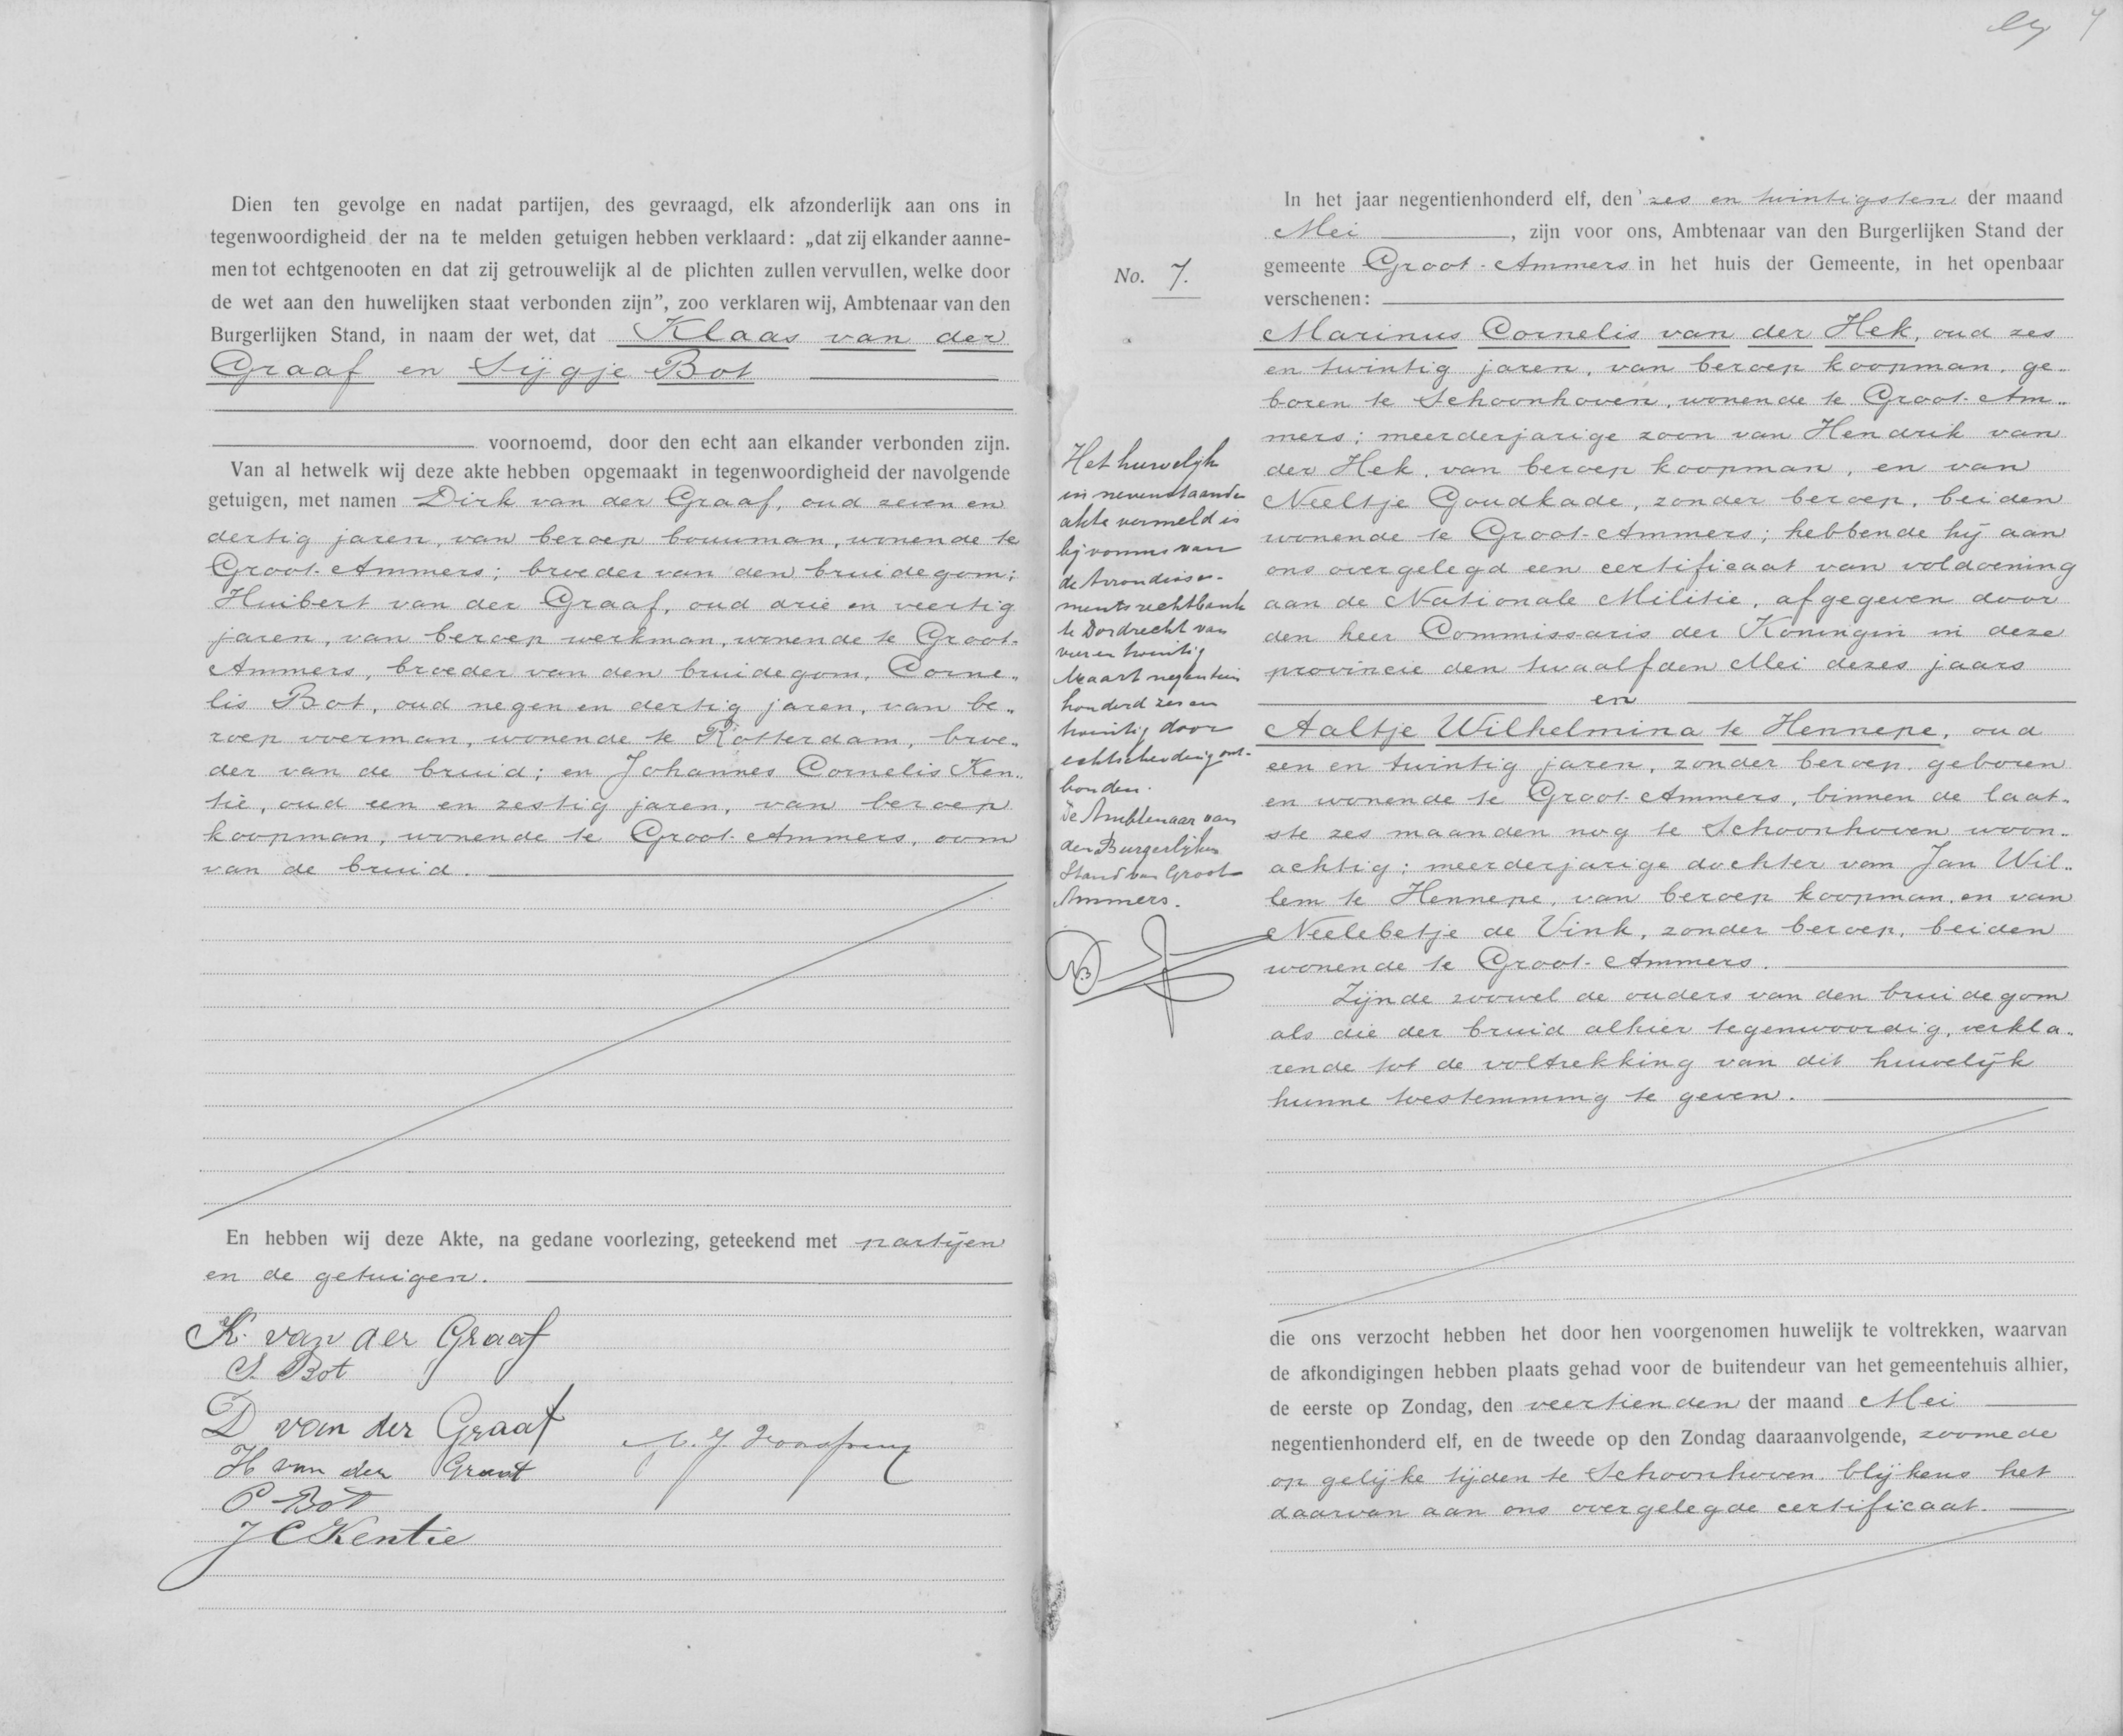 Dien ten gevolge en nadat partijen, des gevraagd, elk afzonderlijk aan ons in
tegenwoordigheid der na te melden getuigen hebben verklaard: „dat zij elkander aanne-
men tot echtgenooten en dat zij getrouwelijk al de plichten zullen vervullen, welke door
de wet aan den huwelijken staat verbonden zijn”, zoo verklaren wij, Ambtenaar van den
Burgerlijken Stand, in naam der wet, dat Klaas van der
Graaf en Sijgje Bot
voornoemd, door den echt aan elkander verbonden zijn.
Van al hetwelk wij deze akte hebben opgemaakt in tegenwoordigheid der navolgende
getuigen, met namen Dirk van der Graaf, oud zeven en
dertig jaren, van beroep bouwman, wonende te
Groot-Ammers; broeder van den bruidegom;
Huibert van der Graaf, oud drie en veertig
jaren, van beroep werkman, wonende te Groot-
Ammers, broeder van den bruidegom, Corne„
lis Bot, oud negen en dertig jaren, van be„
roep voerman, wonende te Rotterdam, broe„
der van de bruid; en Johannes Cornelis Ken„
tie, oud een en zestig jaren, van beroep
koopman, wonende te Groot-Ammers, oom
van de bruid.
En hebben wij deze Akte, na gedane voorlezing, geteekend met partijen
en de getuigen.
K. van der Graaf
S. Bot
D van der Graaf
H van der Graaf
C Bot
J C Kentie
No. 7.
Het huwelijk
in nevenstaande
akte vermeld is
bij vonnis van
de Arrondisse-
mentsrechtbank
te Dordrecht van
vier en twintig
Maart negentien
honderd zes en
twintig door
echtscheiding ont-
bonden.
De Ambtenaar van
den Burgerlijken
Stand van Groot-
Ammers.
In het jaar negentienhonderd elf, den zes en twintigsten der maand
Mei, zijn voor ons, Ambtenaar van den Burgerlijken Stand der
gemeente Groot-Ammers in het huis der Gemeente, in het openbaar
verschenen:
Marinus Cornelis van der Hek, oud zes
en twintig jaren, van beroep koopman, ge„
boren te Schoonhoven, wonende te Groot-Am„
mers; meerderjarige zoon van Hendrik van
der Hek, van beroep koopman, en van
Neeltje Goudkade, zonder beroep, beiden
wonende te Groot-Ammers; hebbende hij aan
ons overgelegd een certificaat van voldoening
aan de Nationale Militie, afgegeven door
den heer Commissaris der Koningin in deze
provincie den twaalfden Mei dezes jaars
en
Aaltje Wilhelmina te Hennepe, oud
een en twintig jaren, zonder beroep, geboren
en wonende te Groot-Ammers, binnen de laat„
ste zes maanden nog te Schoonhoven woon„
achtig; meerderjarige dochter van Jan Wil„
lem te Hennepe, van beroep koopman, en van
Neelebetje de Vink, zonder beroep, beiden
wonende te Groot-Ammers.
Zijnde zoowel de ouders van den bruidegom
als die der bruid alhier tegenwoordig, verkla„
rende tot de voltrekking van dit huwelijk
hunne toestemming te geven.
die ons verzocht hebben het door hen voorgenomen huwelijk te voltrekken, waarvan
de afkondigingen hebben plaats gehad voor de buitendeur van het gemeentehuis alhier,
de eerste op Zondag, den veertienden der maand Mei
negentienhonderd elf, en de tweede op den Zondag daaraanvolgende, zoomede
op gelijke tijden te Schoonhoven blijkens het
daarvan aan ons overgelegde certificaat.